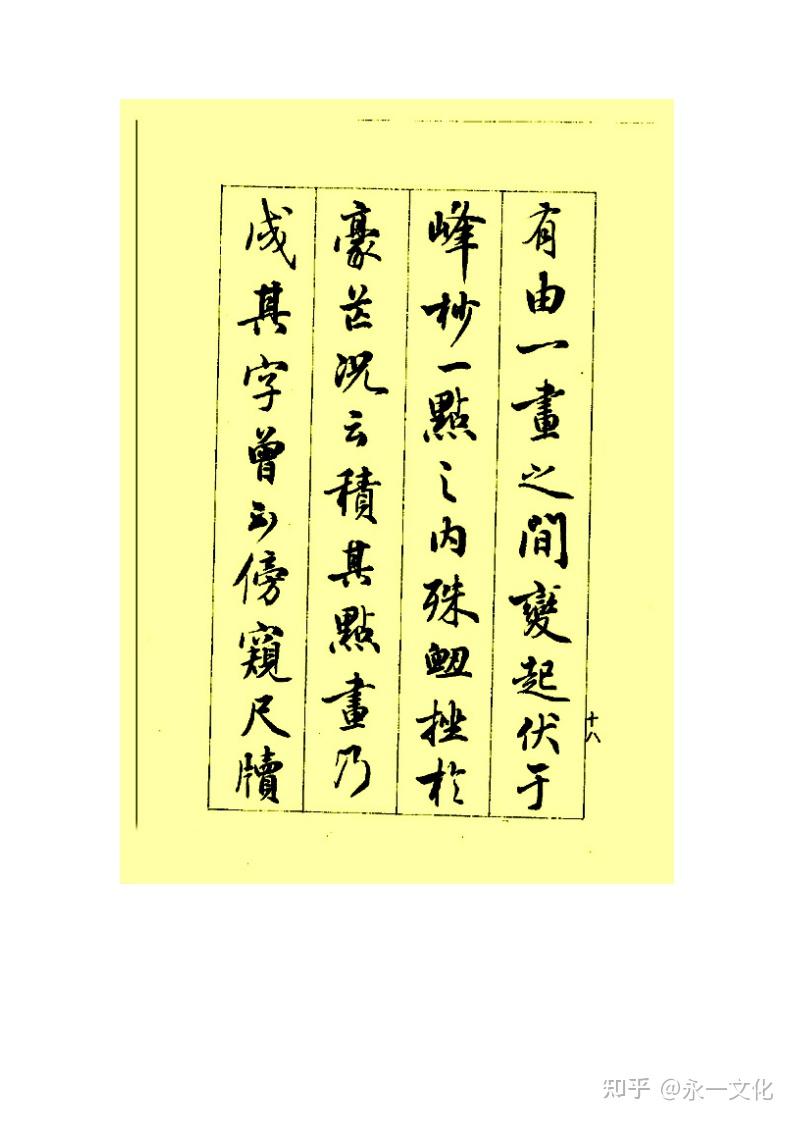 有由一畫之間變起伏于
峰杪一點之内殊衄挫於
豪芒况云積其點畫乃
成其字曾不傍窺尺牘
十八
知乎 @永一文化